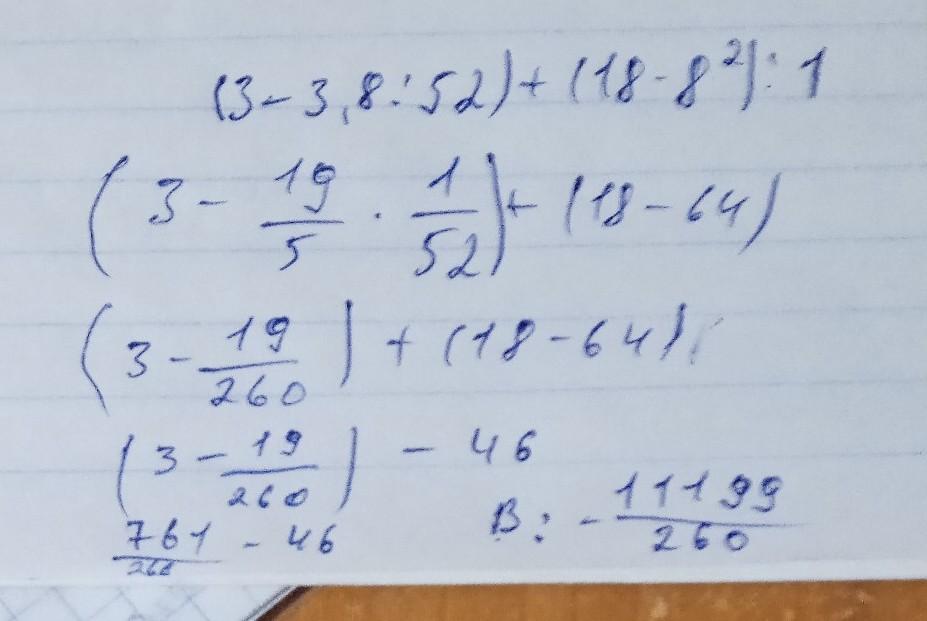 (3 - 3,8 : 52) + (18 - 8²) : 1
(3 - 19/5 · 1/52) + (18 - 64)
(3 - 19/260) + (18 - 64)
(3 - 19/260) - 46
761/260 - 46
В: - 11199/260